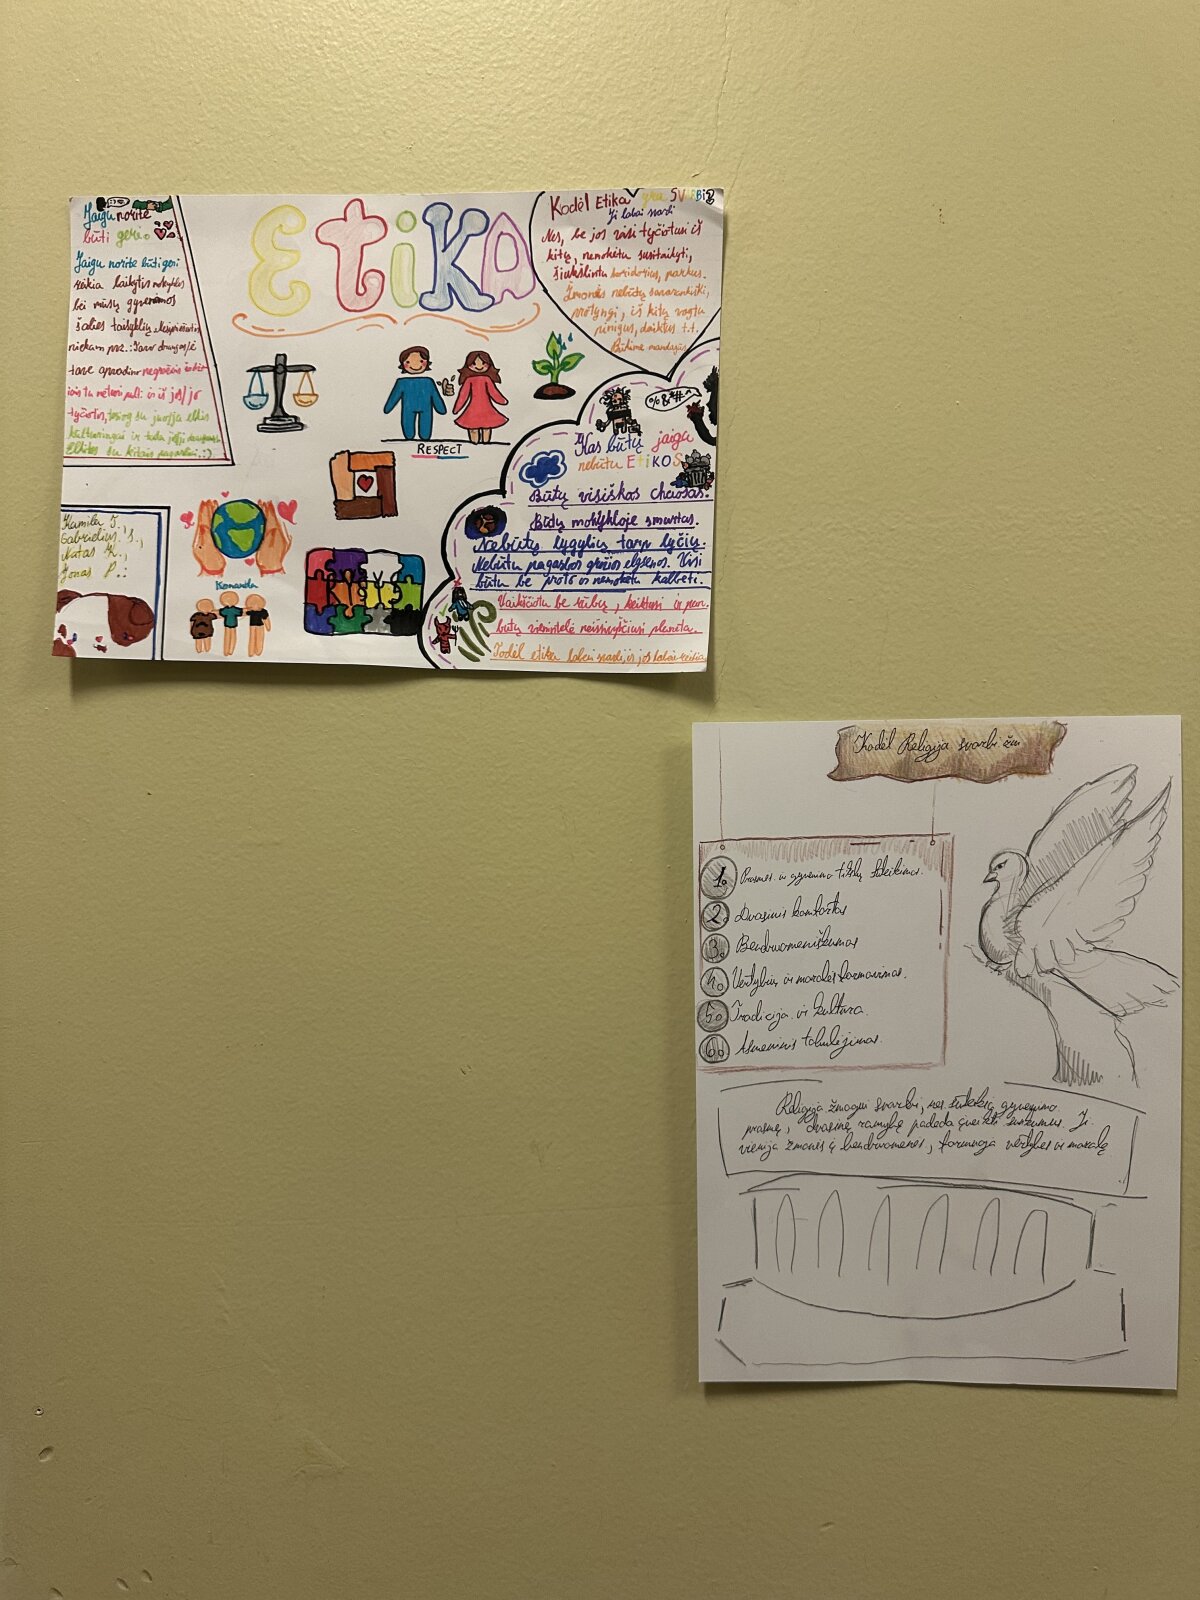 Jaigu norite
būti geri.
Jaigu norite būti geri
reikia laikytis mokyklos
bei mūsų gyvenamos
šalies taisyklių
niekam pvz.: Tavo draugas/ė
tave apvadino negražiais žodž
iais tu neturi pulti ir iš jos/jo
tyčiotis, tiesiog su juo/ja elkis
kultūringai ir tada jis/ji
Elkitės su kitais pagarbiai. :)
ETIKA
Kodėl Etika yra SVARBI?
Ji labai svarbi
Nes, be jos visi tyčiotusi iš
kitų, nemokėtu susitaikyti,
šiukšlintu koridorius, parkus.
Žmonės nebūtų savarankiški,
protyngi, iš kitų vogtu
pinigus, daiktus t.t.
Būkime mandagūs
RESPECT
%&*#^
Kas būtų jaigu
nebūtu ETIKOS
Būtų visiškas chaosas.
Būtų mokykloje smurtas.
Nebūtų lygybių tarp lyčių.
Nebūtu pagarbos gražios elgsenos. Visi
būtu be proto ir nemokėtu kalbėti.
Vaikščiotu be rūbų, keiktusi ir
būtų vienintelė neišsivysčiusi planeta.
Todėl etika labai svarbi, ir jos labai reikia
Kamilė J.
Gabrielius S.,
Matas K.,
Jonas P.:
Komanda
Kodėl Religija svarbi žm
1. Prasmės ir gyvenimo tikslų suteikimas.
2. Dvasinis komfortas
3. Bendruomeniškumas
4. Vertybių ir moralės formavimas.
5. Tradicija ir kultūra.
6. Asmeninis tobulėjimas.
Religija žmogui svarbi, nes suteikia gyvenimo
prasmę, dvasinę ramybę padeda įveikti sunkumus. Ji
vienija žmones į bendruomenes, formuoja vertybes ir moralę